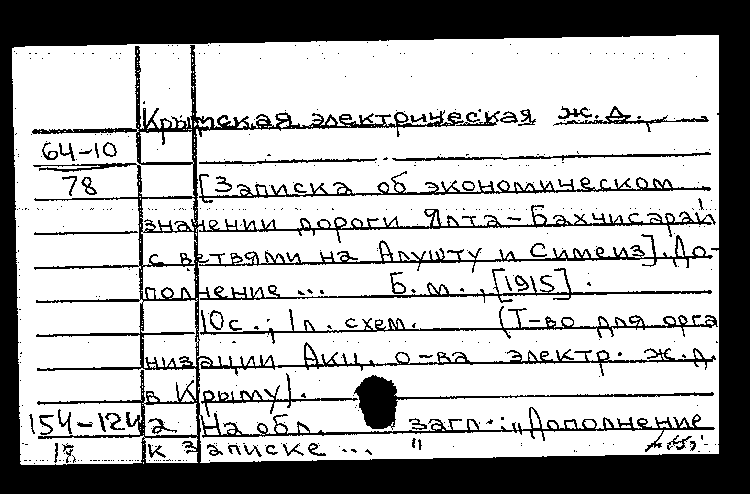 Крымская электрическая ж.д.,
64-10
78
[Записка об экономическом
значении дороги Ялта-Бахчисарай
с ветвями на Алушту и Симеиз]. До-
полнение ... Б.м., [1915].
10с.; 1л. схем. (Т-во для орга
низации Акц. о-ва электр. ж.д.
в Крыму).
154-124а На обл. загл.: "Дополнение
18 к записке ... "